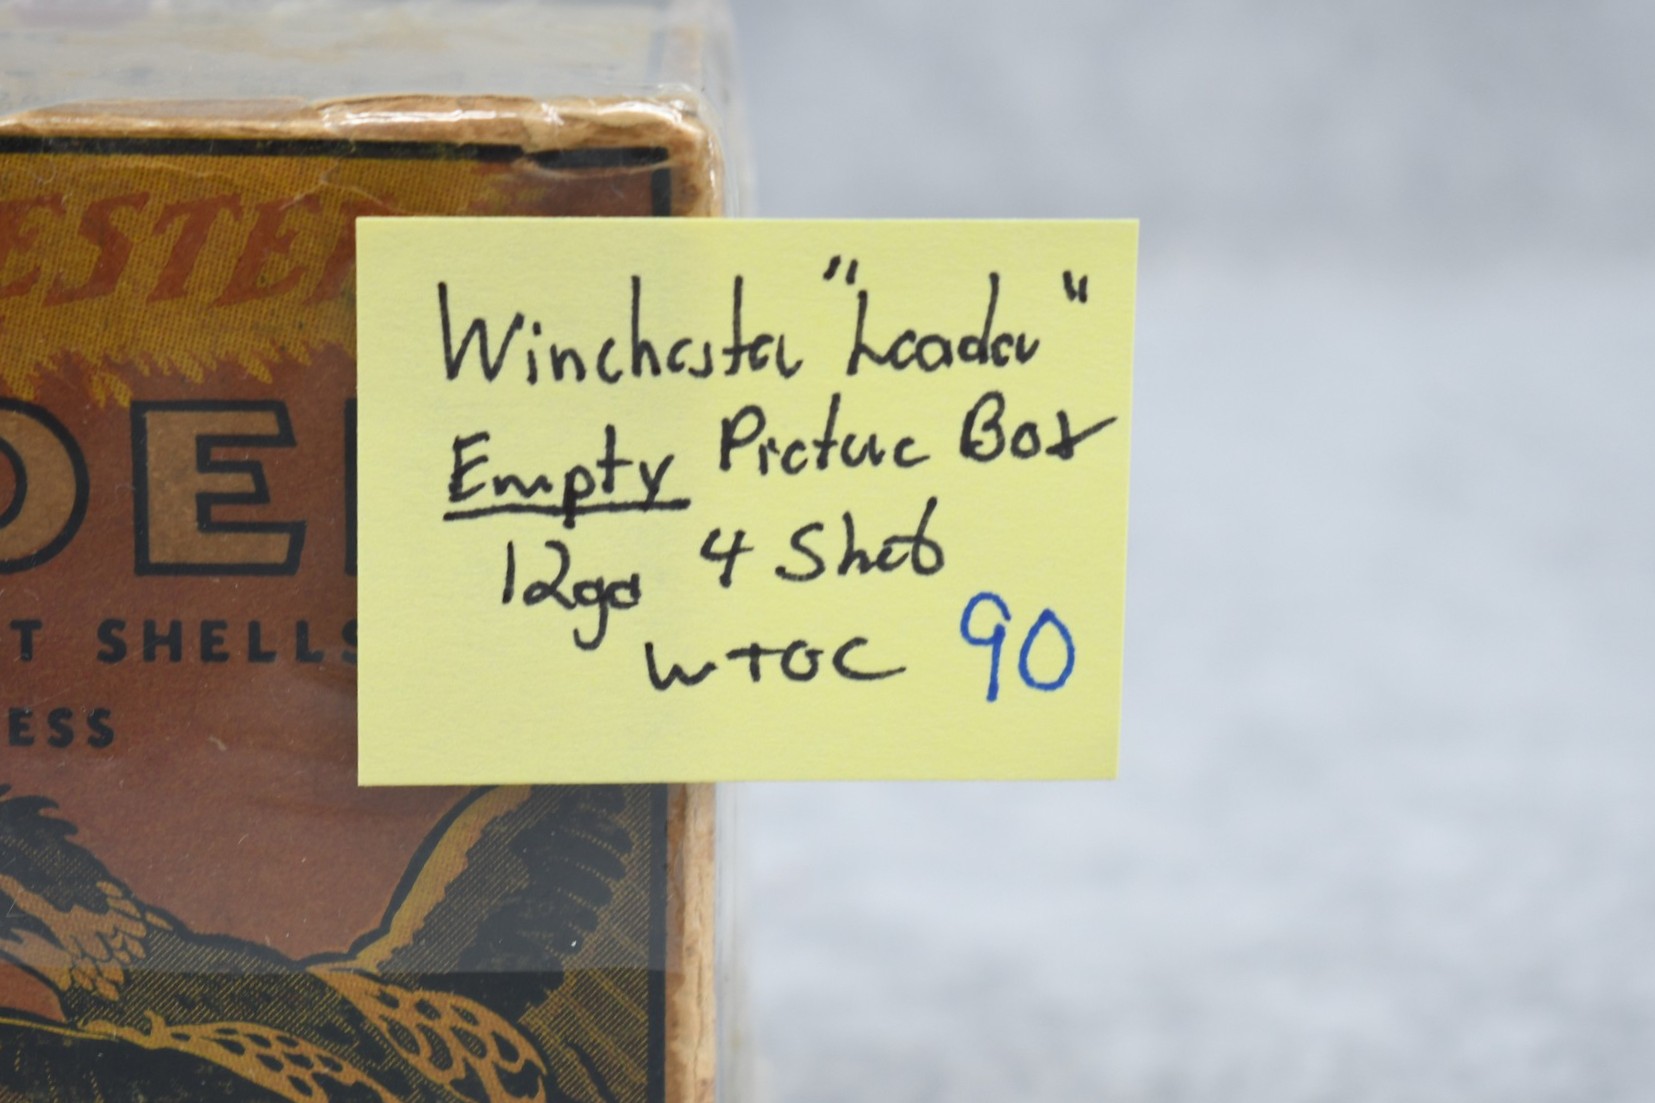 ESTE
DE
T SHELLS
ESS
Winchester "Leader"
Empty Picture Box
12ga 4 Shot
WTOC 90